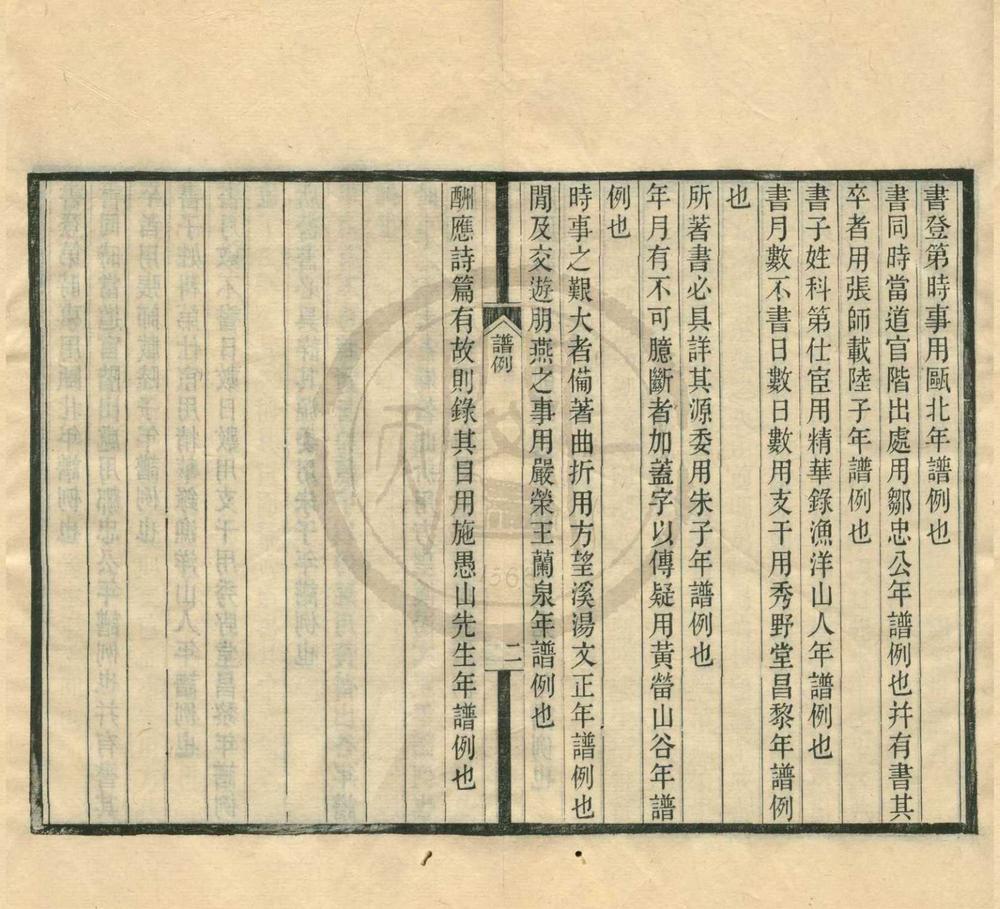 書登第時事用甌北年譜例也
書同時當道官階出處用鄒忠公年譜例也幷有書其
卒者用張師載陸子年譜例也
書子姓科第仕宦用精華錄漁洋山人年譜例也
書月數不書日數日數用支干用秀野堂昌黎年譜例
也
所著書必具詳其源委用朱子年譜例也
年月有不可臆斷者加蓋字以傳疑用黃㽦山谷年譜
例也
時事之艱大者備著曲折用方望溪湯文正年譜例也
閒及交遊朋燕之事用嚴榮王蘭泉年譜例也
譜例
二
酬應詩篇有故則錄其目用施愚山先生年譜例也